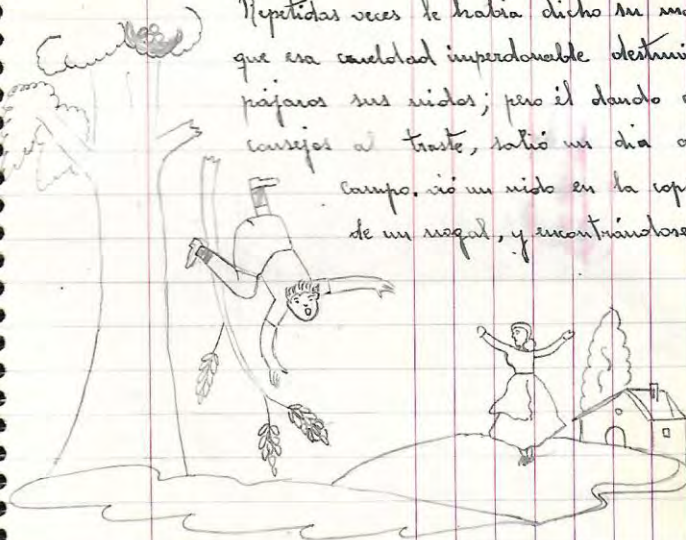 Repetidas veces le había dicho su
que esa crueldad imperdonable
pájaros sus nidos; pero él dando
consejos al traste, salió un día
campo. vió un nido en la
de un nogal, y encontrándose